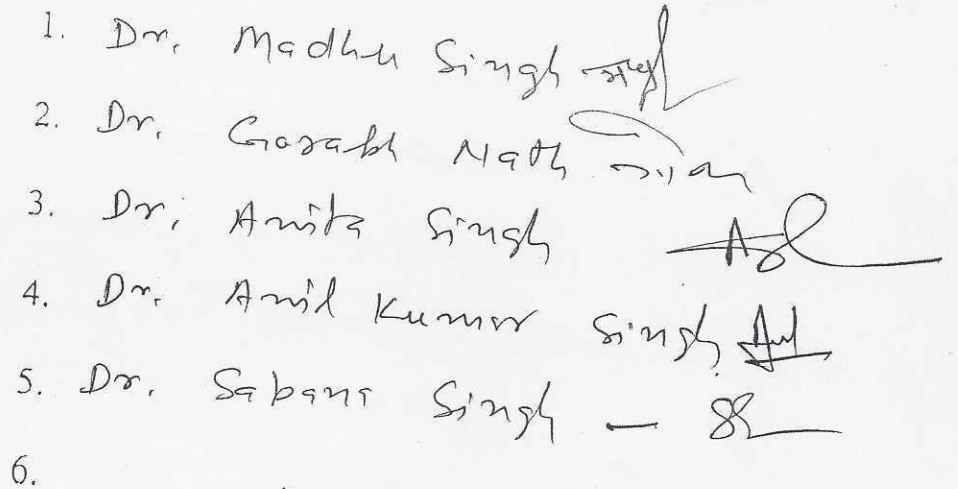 1. Dr. Madhu Singh
2. Dr. Gorakh Nath
3. Dr. Anita Singh
4. Dr. Anil Kumar Singh
5. Dr. Sabana Singh –
6.